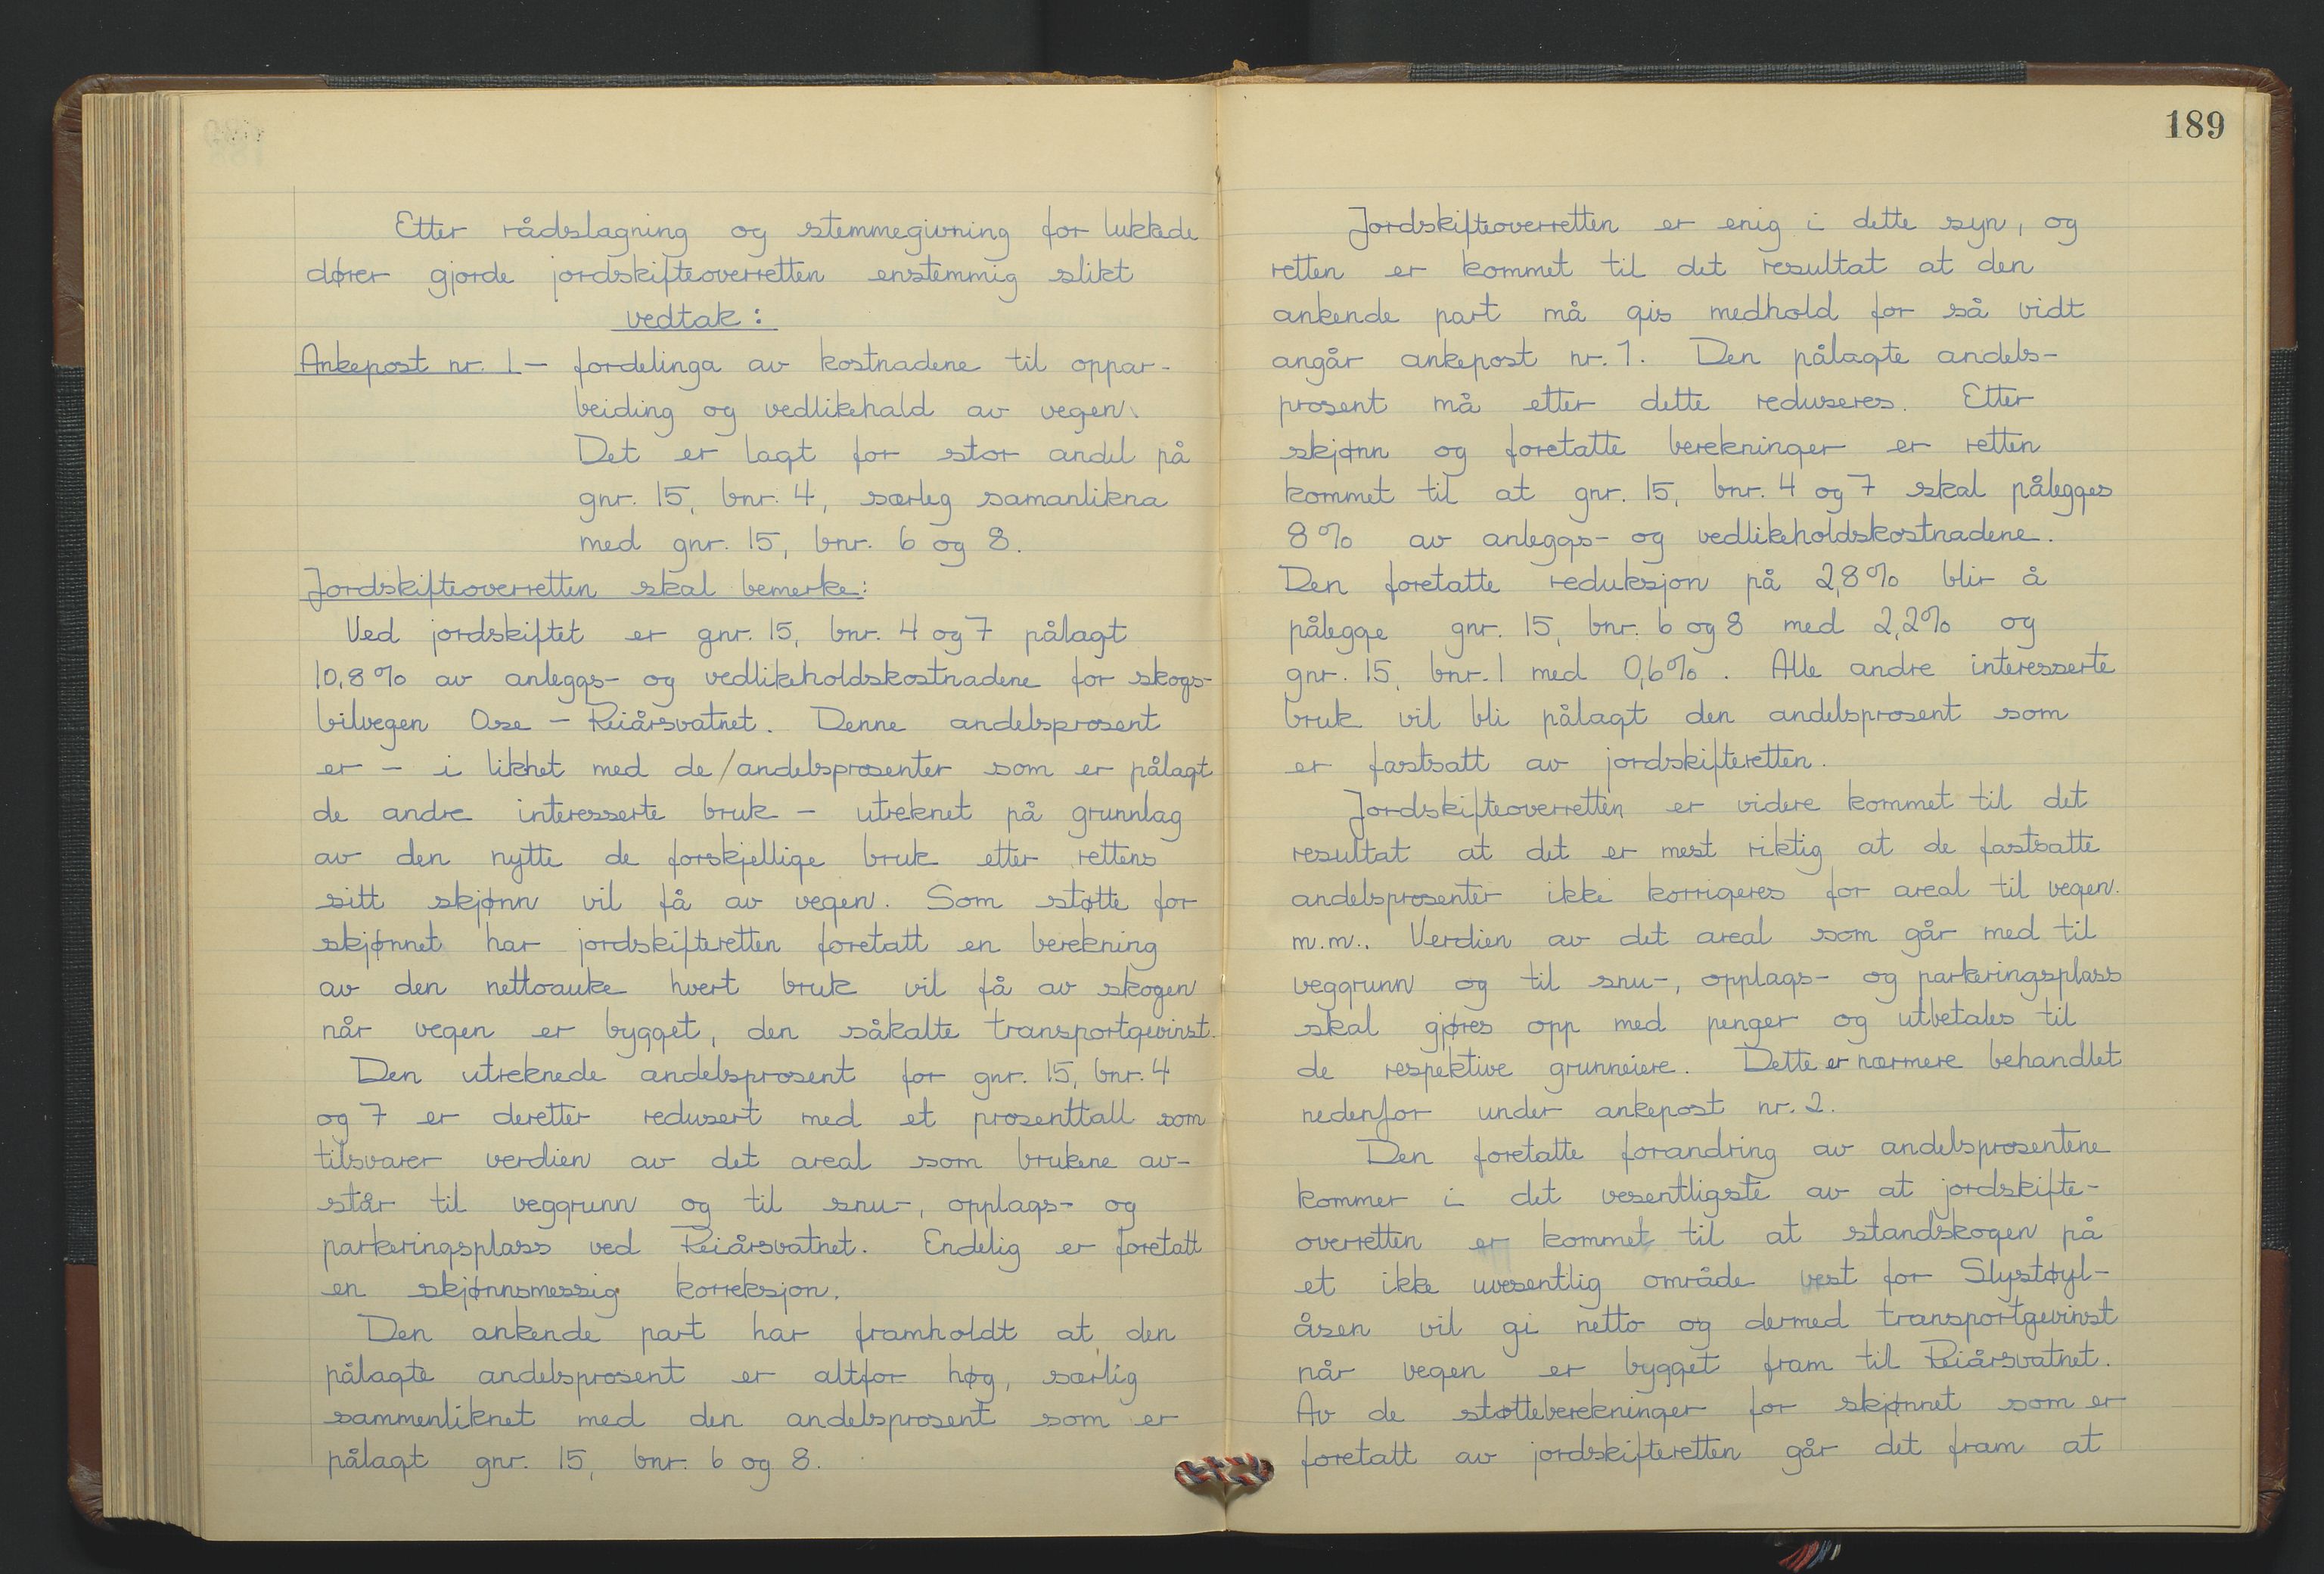 Etter rådslagning og stemmegivning for lukkede
dører gjorde jordskifteoverretten enstemmig slikt
vedtak:
Ankepost nr. 1 - fordelinga av kostnadene til oppar-
beiding og vedlikehald av vegen.
Det er lagt for stor andel på
gnr. 15, bnr. 4, særleg samanlikna
med gnr. 15, bnr. 6 og 8.
Jordskifteoverretten skal bemerke:
Ved jordskiftet er gnr. 15, bnr. 4 og 7 pålagt
10,8% av anleggs- og vedlikeholdskostnadene for skogs-
bilvegen Ose - Reiårsvatnet. Denne andelsprosent
er - i likhet med de/andelsprosenter som er pålagt
de andre interesserte bruk - utreknet på grunnlag
av den nytte de forskjellige bruk etter rettens
sitt skjønn vil få av vegen. Som støtte for
skjønnet har jordskifteretten foretatt en berekning
av den nettoauke hvert bruk vil få av skogen
når vegen er bygget, den såkalte transportgevinst.
Den utreknede andelsprosent for gnr. 15, bnr. 4
og 7 er deretter redusert med et prosenttall som
tilsvarer verdien av det areal som brukene av-
står til veggrunn og til snu-, opplags- og
parkeringsplass ved Reiårsvatnet. Endelig er foretatt
en skjønnsmessig korreksjon.
Den ankende part har framholdt at den
pålagte andelsprosent er altfor høg, særlig
sammenliknet med den andelsprosent som er
pålagt gnr. 15, bnr. 6 og 8.
189
Jordskifteoverretten er enig i dette syn, og
retten er kommet til det resultat at den
ankende part må gis medhold for så vidt
angår ankepost nr. 1. Den pålagte andels-
prosent må etter dette reduseres. Etter
skjønn og foretatte berekninger er retten
kommet til at gnr. 15, bnr. 4 og 7 skal pålegges
8% av anleggs- og vedlikeholdskostnadene.
Den foretatte reduksjon på 2,8% blir å
pålegge gnr. 15, bnr. 6 og 8 med 2,2% og
gnr. 15, bnr. 1 med 0,6%. Alle andre interesserte
bruk vil bli pålagt den andelsprosent som
er fastsatt av jordskifteretten.
Jordskifteoverretten er videre kommet til det
resultat at det er mest riktig at de fastsatte
andelsprosenter ikke korrigeres for areal til vegen
m.m.. Verdien av det areal som går med til
veggrunn og til snu-, opplags- og parkeringsplass
skal gjøres opp med penger og utbetales til
de respektive grunneiere. Dette er nærmere behandlet
nedenfor under ankepost nr. 2.
Den foretatte forandring av andelsprosentene
kommer i det vesentligste av at jordskifte-
overretten er kommet til at standskogen på
et ikke uvesentlig område vest for Slystøyl-
åsen vil gi netto og dermed transportgevinst
når vegen er bygget fram til Reiårsvatnet.
Av de støtteberekninger for skjønnet som er
foretatt av jordskifteretten går det fram at